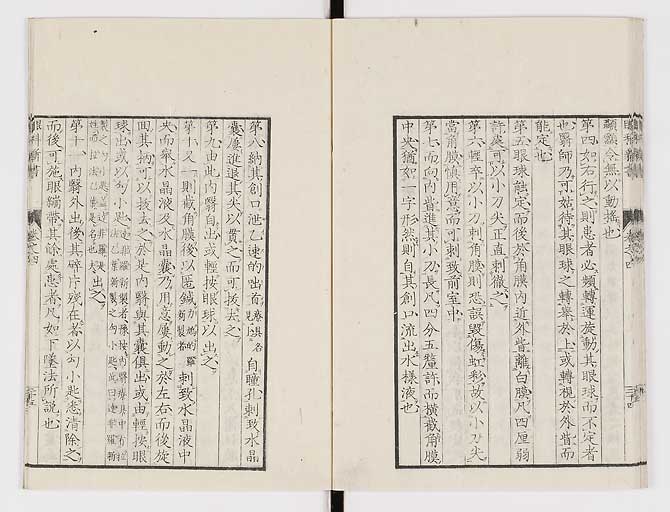 顳顬令無以動搖也
第四如右行之則患者必頻轉運旋動其眼球而不定者
也醫師乃可姑待其眼球之轉舉於上或轉視於外眥而
能定也
第五眼球能定而後於角膜內近外眥離白膜凡四厘弱
許處可以小刀尖正直刺徹之
第六輕卒以小刀刺角膜則恐誤毀傷虹彩故以小刀尖
當角膜慎用意而可刺致前室中
第七而向內眥進其小刀長凡四分五釐許而橫截角膜
中央猶如一字形然則自其創口流出水樣液也
眼科新書 卷之四 三十四
第八納其創口泄乙速的咄首療具名見上自瞳孔刺致水晶
囊廑進退其尖以貫之而可拔去之
第九由此內翳自出或輕按眼球以出之
第十又一則截角膜後以匿鍼刺致水晶液中
央而氣水晶液及水晶囊乃用意廑動之於左右而後旋
回其柄可以拔去之於是內翳與其囊俱出或由輕按眼
球出或以勾小匙出之
第十一內翳外出後其碎片殘在者以勾小匙悉清除之
而後可施眼繃帶其餘處患者凡如下墜法所說也
眼科新書 卷之四 三十五